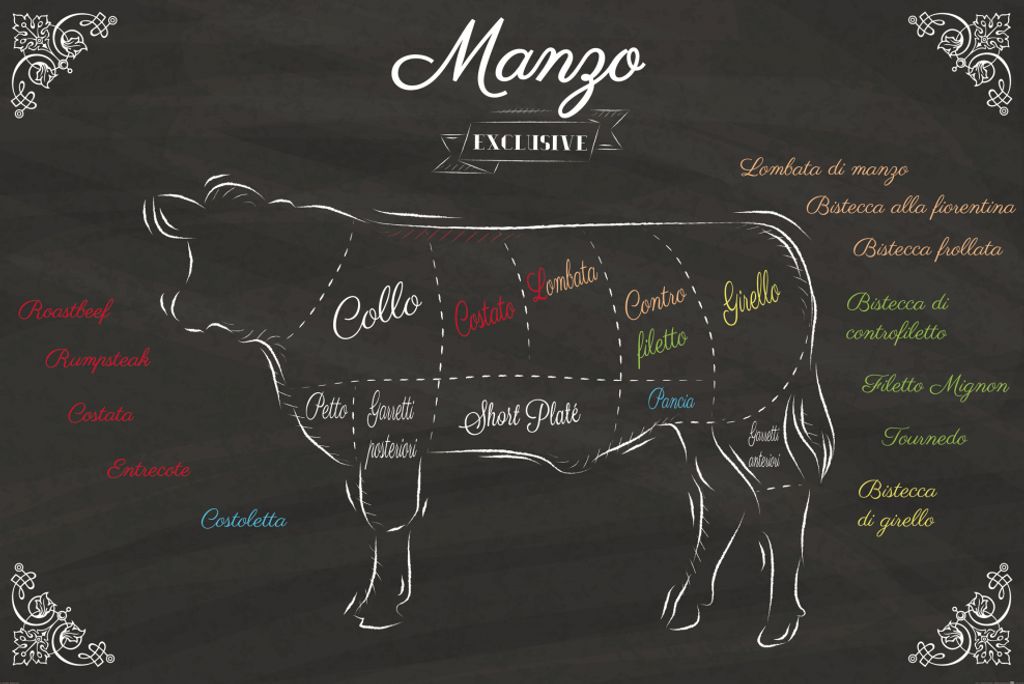 Manzo
EXCLUSIVE
Lombata di manzo
Bistecca alla fiorentina
Bistecca frollata
Roastbeef
Rumpsteak
Costata
Entrecote
Costoletta
Collo
Costato
Lombata
Contro
filetto
Girello
Petto
Garretti
posteriori
Short Platé
Pancia
Garretti
anteriori
Bistecca di
controfiletto
Filetto Mignon
Tournedo
Bistecca
di girello